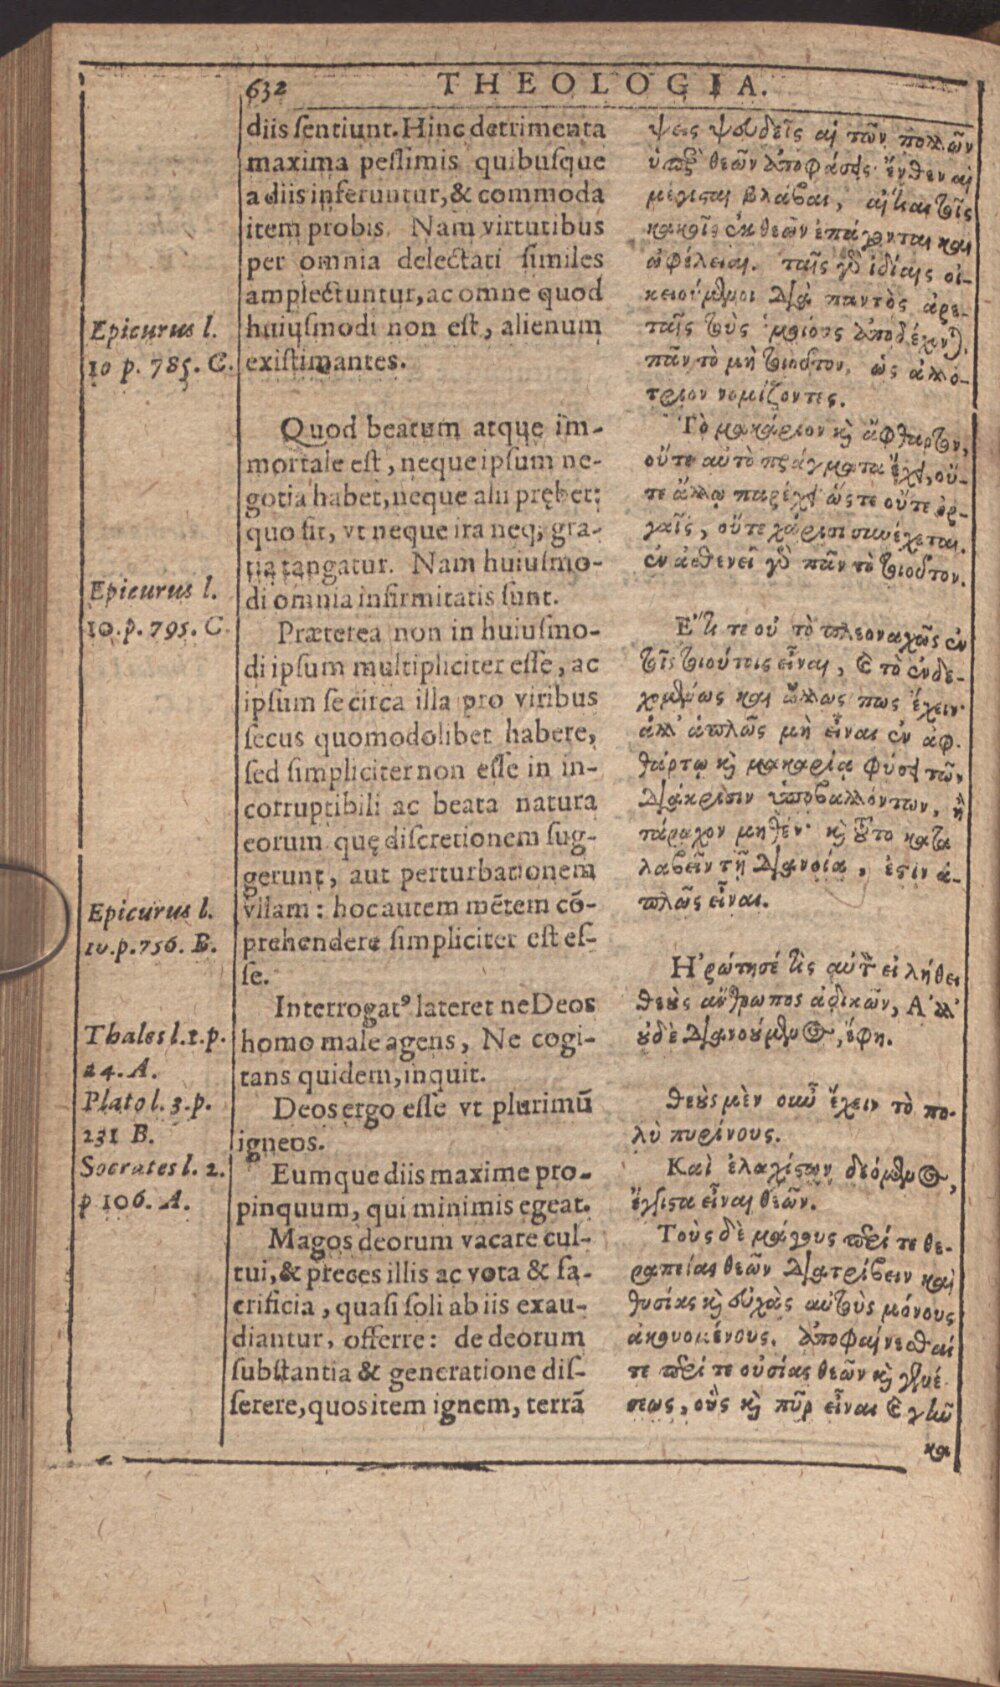 632 THEOLOGIA.
Epicurus l.
10 p. 785. C.
Epicurus l.
10.p. 795. C.
Epicurus l.
10.p.756. B.
Thales l.1.p.
24. A.
Plato l. 3.p.
231 B.
Socrates l. 2.
p 106. A.
diis ſentiunt. Hinc detrimenta
maxima peſſimis quibuſque
a diis inferuntur, & commoda
item probis. Nam virtutibus
per omnia delectati ſimiles
amplectuntur, ac omne quod
huiuſmodi non eſt, alienum
exiſtimantes.
Quod beatum atque im-
mortale eſt, neque ipſum ne-
gotia habet, neque alii pręhet:
quo fit, vt neque ira neq; gra-
tia tangatur. Nam huiuſmo-
di omnia infirmitatis ſunt.
Præterea non in huiuſmo-
di ipſum multipliciter eſſe, ac
ipſum ſe circa illa pro viribus
ſecus quomodolibet habere,
ſed ſimpliciter non eſſe in in-
corruptibili ac beata natura
eorum quę diſcretionem ſug-
gerunt, aut perturbationem
vllam: hoc autem mētem cō-
prehendere ſimpliciter eſt eſ-
ſe.
Interrogatꝰ lateret ne Deos
homo male agens, Ne cogi-
tans quidem, inquit.
Deos ergo eſſe vt plurimū
igneos.
Eumque diis maxime pro-
pinquum, qui minimis egeat.
Magos deorum vacare cul-
tui, & preces illis ac vota & ſa-
crificia, quaſi ſoli ab iis exau-
diantur, offerre: de deorum
ſubſtantia & generatione diſ-
ſerere, quos item ignem, terrā
ψεις ψευδεῖς αἱ τῶν πολλῶν
ὑπὲρ θεῶν ἀποφάσεις· ἔνθεν αἱ
μέγισται βλάβαι, αἴτιαι τοῖς
κακοῖς ἐκ θεῶν ἐπάγονται καὶ
ὠφέλειαι. ταῖς γὰρ ἰδίαις οἰ-
κειούμενοι διὰ παντὸς ἀρε-
ταῖς τοὺς ὁμοίους ἀποδέχονται.
πᾶν τὸ μὴ τοιοῦτον, ὡς ἀλλό-
τριον νομίζοντες.
Τὸ μακάριον καὶ ἄφθαρτον,
οὔτε αὐτὸ πράγματα ἔχει, οὔ-
τε ἄλλῳ παρέχει ὥστε οὔτε ὀρ-
γαῖς, οὔτε χάρισι συνέχεται.
ἐν ἀσθενεῖ γὰρ πᾶν τὸ τοιοῦτον.
Ἔτι τε οὐ τὸ πλεοναχῶς ἐν
τοῖς τοιούτοις εἶναι, καὶ τὸ ἐνδε-
χομένως καὶ ἄλλως πως ἔχειν·
ἀλλ' ἁπλῶς μὴ εἶναι ἐν ἀφ-
θάρτῳ καὶ μακαρίᾳ φύσει τῶν
διάκρισιν ὑποβαλλόντων, ἢ
τάραχον μηθέν· καὶ τοῦτο κατα
λαβεῖν τῇ διανοίᾳ, ἔστιν ἁ-
πλῶς εἶναι.
Ἠρώτησέ τις αὐτὸν εἰ λήθει
θεοὺς ἄνθρωπος ἀδικῶν, Ἀλλ'
οὐδὲ διανοούμενος, ἔφη.
θεοὺς μὲν οὖν ἔχειν τὸ πο-
λὺ πυρίνους.
Καὶ ἐλαχίστων δεόμενος,
ἔγγιστα εἶναι θεῶν.
Τοὺς δὲ μάγους περί τε θε-
ραπείας θεῶν διατρίβειν καὶ
θυσίας καὶ εὐχὰς αὐτοὺς μόνους
ἀκουομένους. ἀποφαίνεσθαί
τε περί τε οὐσίας θεῶν καὶ γενέ-
σεως, οὓς καὶ πῦρ εἶναι καὶ γῆν
καὶ